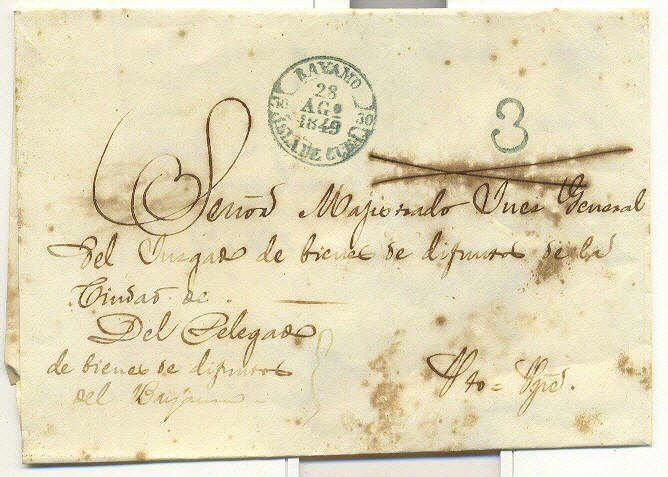 BAYAMO
28
AGº
1849
ISLA DE CUBA
3
Señor Magistrado Juez General
del Juzgado de bienes de difuntos de la
Ciudad de
Del Delegado
de bienes de difuntos
del Bayamo
Pto = Pype.